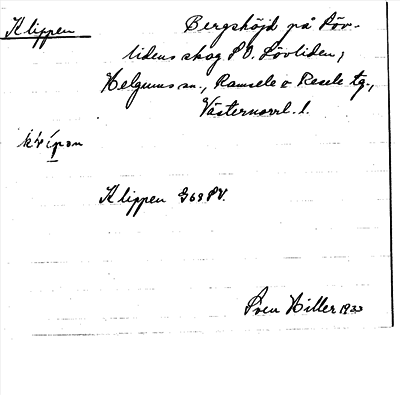 Klippen Bergshöjd på Löv-
lidens skog S O. Lövliden;
Helgums sn., Ramsele o Resele tg.,
Västernorrl. l.
Klippen G69 SV.
Sven Hiller 1933